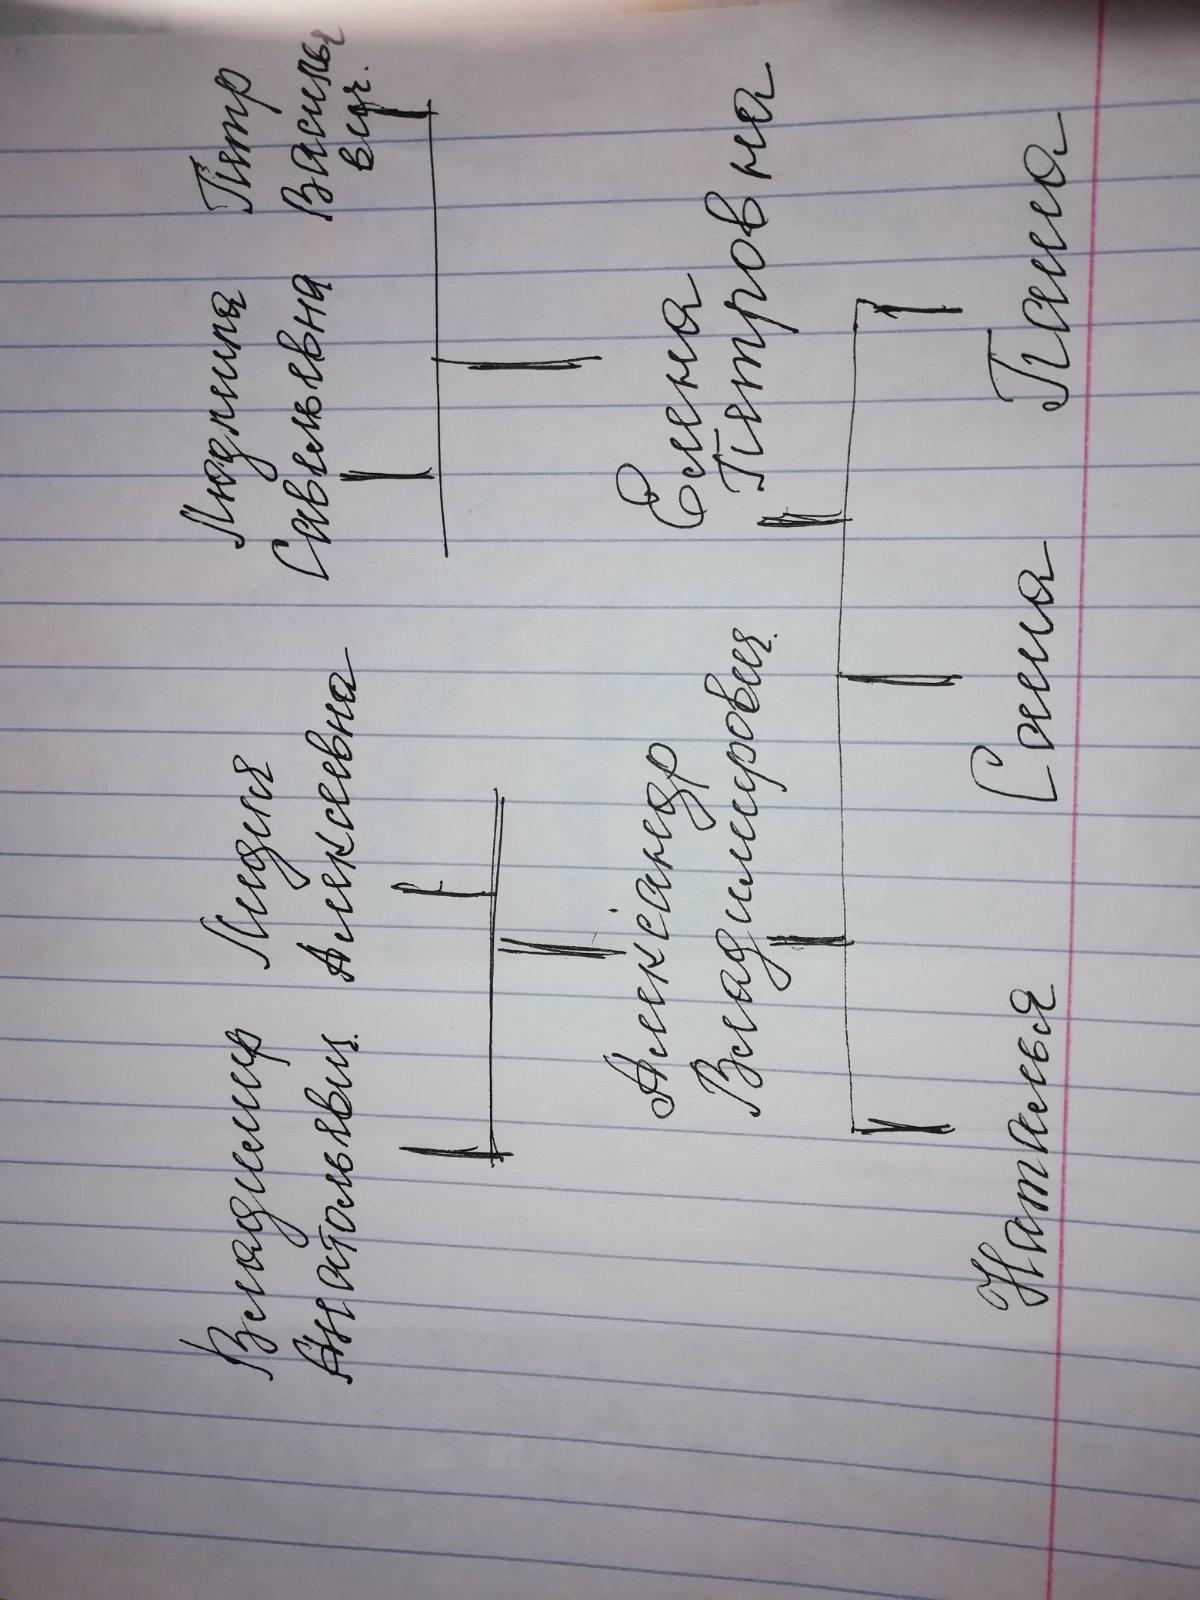 Владимир
Анатольевич.
Лидия
Алексеевна
Людмила
Савельевна
Пётр
Василье
вич.
Александр
Владимирович.
Елена
Петровна
Наталья
Саша
Паша